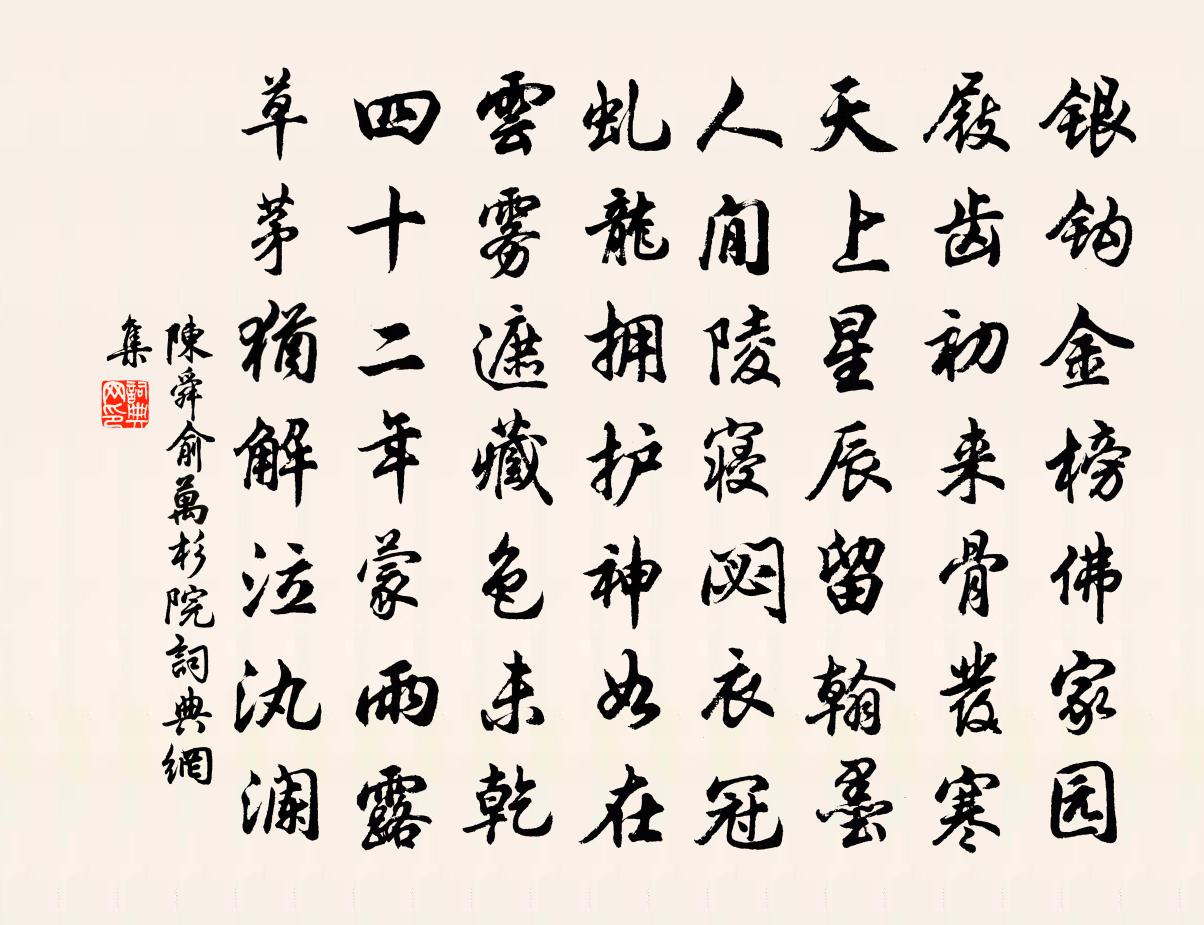 银钩金榜佛家园
屐齿初来骨發寒
天上星辰留翰墨
人间陵寝閟衣冠
虬龍拥护神如在
雲雾遮藏色未乾
四十二年蒙雨露
草茅猶解泣汍澜
陳舜俞萬杉院詞典網
集
詞典网印